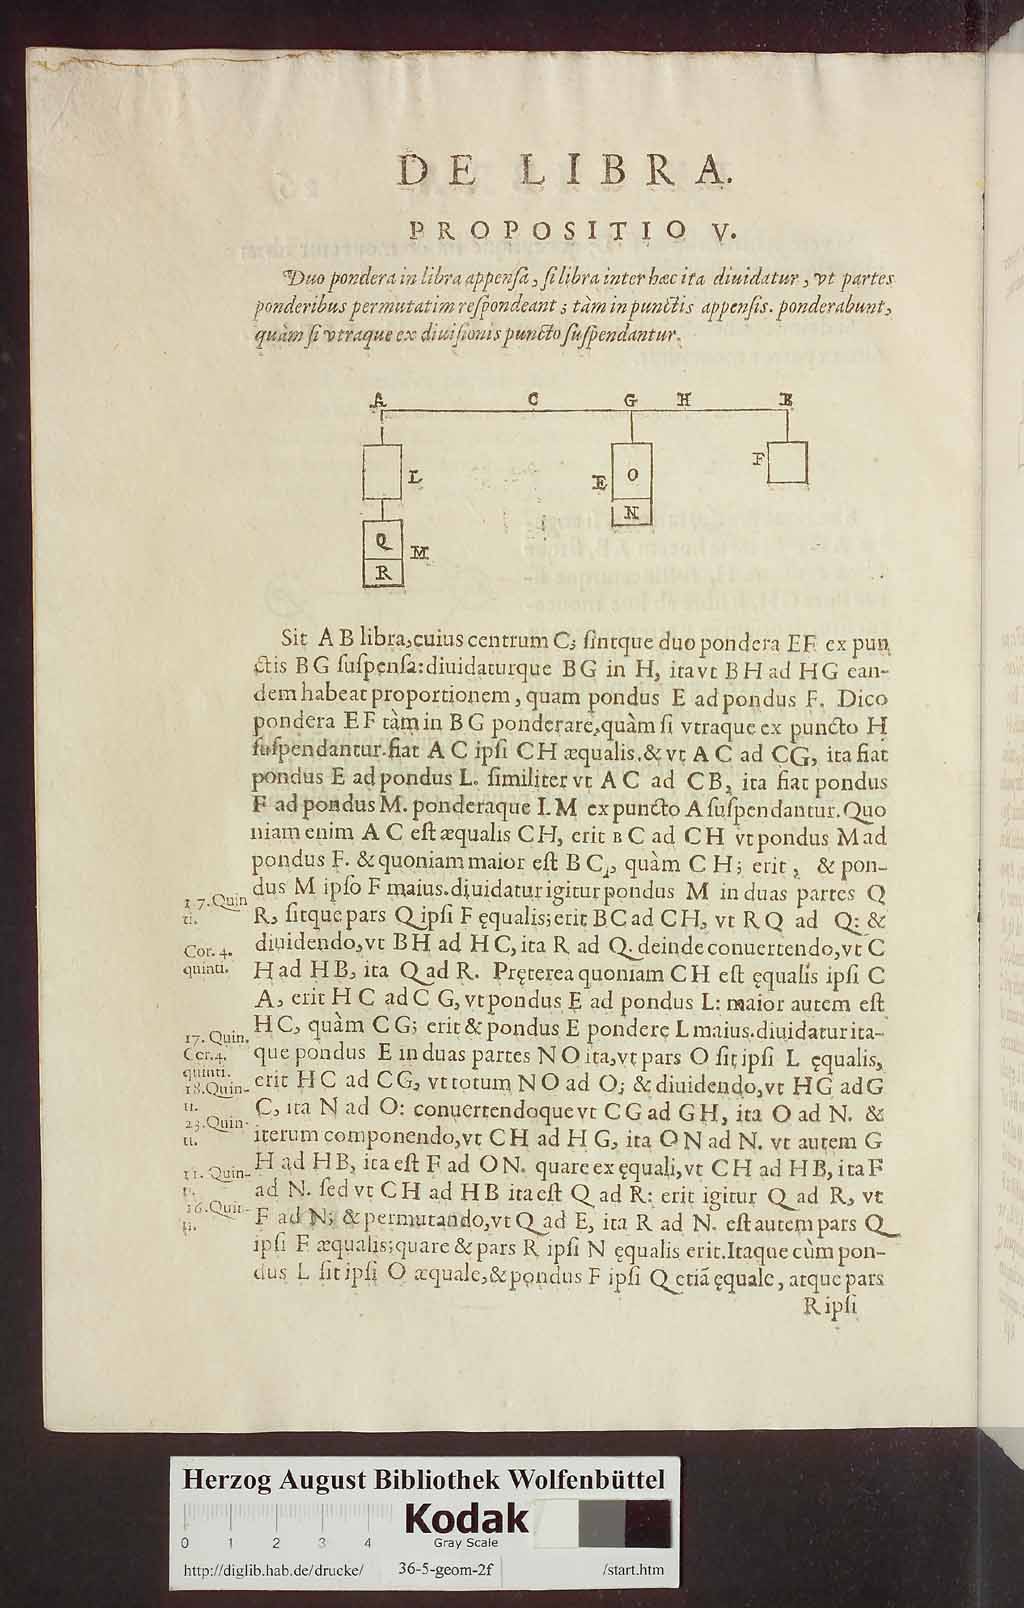 DE LIBRA.
PROPOSITIO V.
Duo pondera in libra appenſa, ſi libra inter hæc ita diuidatur, vt partes
ponderibus permutatim reſpondeant; tàm in punctis appenſis ponderabunt,
quàm ſi vtraque ex diuiſionis puncto ſuſpendantur.
A C G H B
L E O F
N
Q M
R
Sit A B libra, cuius centrum C; ſintque duo pondera E F ex pun
ctis B G ſuſpenſa: diuidaturque B G in H, ita vt B H ad H G ean-
dem habeat proportionem, quam pondus E ad pondus F. Dico
pondera E F tàm in B G ponderare, quàm ſi vtraque ex puncto H
ſuſpendantur. fiat A C ipſi C H æqualis. & vt A C ad C G, ita fiat
pondus E ad pondus L. ſimiliter vt A C ad C B, ita fiat pondus
F ad pondus M. ponderaque L M ex puncto A ſuſpendantur. Quo
niam enim A C eſt æqualis C H, erit B C ad C H vt pondus M ad
pondus F. & quoniam maior eſt B C, quàm C H; erit, & pon-
dus M ipſo F maius. diuidatur igitur pondus M in duas partes Q
17. Quin
ti.
R, ſitque pars Q ipſi F ęqualis; erit B C ad C H, vt R Q ad Q: &
diuidendo, vt B H ad H C, ita R ad Q. deinde conuertendo, vt C
Cor. 4.
quinti.
H ad H B, ita Q ad R. Pręterea quoniam C H eſt ęqualis ipſi C
A, erit H C ad C G, vt pondus E ad pondus L: maior autem eſt
H C, quàm C G; erit & pondus E pondere L maius. diuidatur ita-
17. Quin.
Cor. 4.
que pondus E in duas partes N O ita, vt pars O ſit ipſi L ęqualis,
quinti.
18. Quin-
erit H C ad C G, vt totum N O ad O; & diuidendo, vt H G ad G
ti.
C, ita N ad O: conuertendoque vt C G ad G H, ita O ad N. &
23. Quin-
ti.
iterum componendo, vt C H ad H G, ita O N ad N. vt autem G
H ad H B, ita eſt F ad O N. quare ex ęquali, vt C H ad H B, ita F
11. Quin-
ti.
ad N. ſed vt C H ad H B ita eſt Q ad R: erit igitur Q ad R, vt
16. Quin-
ti.
F ad N; & permutando, vt Q ad F, ita R ad N. eſt autem pars Q
ipſi F æqualis; quare & pars R ipſi N ęqualis erit. Itaque cùm pon-
dus L ſit ipſi O æquale, & pondus F ipſi Q etiā ęquale, atque pars
R ipſi
Herzog August Bibliothek Wolfenbüttel
0 1 2 3 4
Kodak
Gray Scale
http://diglib.hab.de/drucke/ 36-5-geom-2f /start.htm